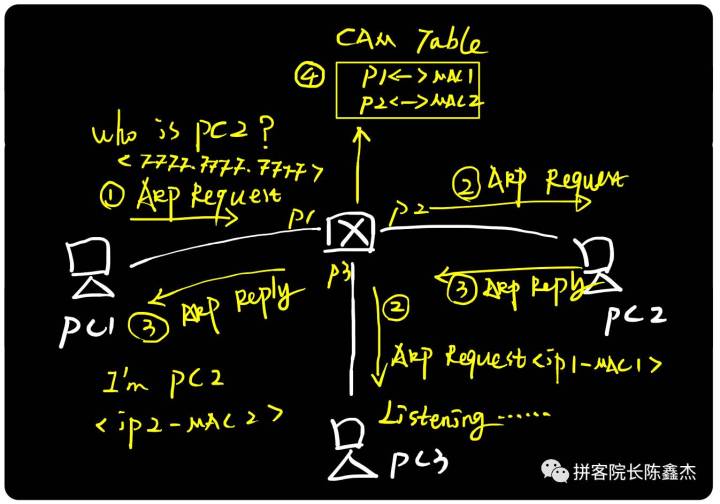 CAM Table
④ P1<-->MAC1
P2<-->MAC2
who is PC2?
<7777.7777.7777>
① ARP Request
② ARP Request
P1
P2
P3
③ ARP Reply
③ ARP Reply
PC1
PC2
②
ARP Request<ip1-MAC1>
I'm PC2
<ip2-MAC2>
Listening......
PC3
拼客院长陈鑫杰